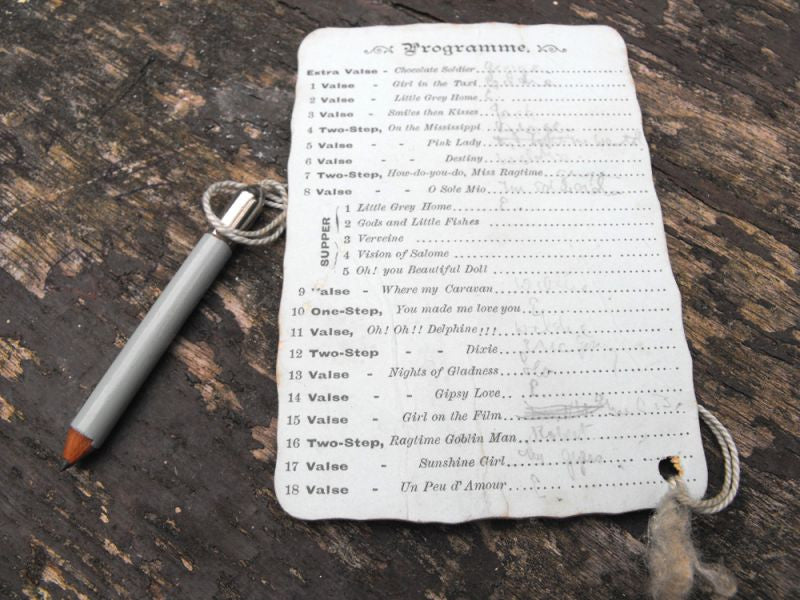 Programme.
Extra Valse - Chocolate Soldier
1 Valse - Girl in the Taxi
2 Valse - Little Grey Home
3 Valse - Smiles then Kisses
4 Two-Step, On the Mississippi
5 Valse - - Pink Lady
6 Valse - - Destiny
7 Two-Step, How-do-you-do, Miss Ragtime
8 Valse - - O Sole Mio
SUPPER
1 Little Grey Home
2 Gods and Little Fishes
3 Verveine
4 Vision of Salome
5 Oh! you Beautiful Doll
9 Valse - Where my Caravan
10 One-Step, You made me love you
11 Valse, Oh! Oh!! Delphine!!!
12 Two-Step - - Dixie
13 Valse - Nights of Gladness
14 Valse - - Gipsy Love
15 Valse - Girl on the Film
16 Two-Step, Ragtime Goblin Man Robert
17 Valse - Sunshine Girl
18 Valse - Un Peu d'Amour